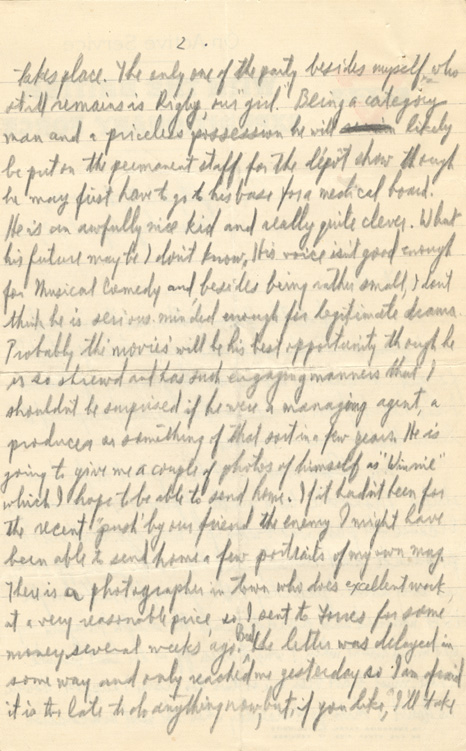 2.
takes place. The only one of the party besides myself who
still remains is Rigby, our "girl". Being a category
man and a priceless possession he will likely
be put on the permanent staff for the depôt show though
he may first have to go to his base for a medical board.
He is an awfully nice kid and really quite clever. What
his future may be I don't know. His voice isn't good enough
for Musical Comedy and, besides being rather small, I don't
think he is serious-minded enough for legitimate drama.
Probably the 'movies' will be his best opportunity though he
is so shrewd and has such engaging manners that I
shouldn't be surprised if he were a managing agent, a
producer or something of that sort in a few years. He is
going to give me a couple of photos of himself as "Winnie"
which I hope to be able to send home. If it hadn't been for
the recent 'push' by our friend the enemy I might have
been able to send home a few portraits of my own mug.
There is a photographer in town who does excellent work
at a very reasonable price so I sent to for some
money several weeks ago. But the letter was delayed in
some way and only reached me yesterday so I am afraid
it is too late to do anything now, but, if you like, I'll take